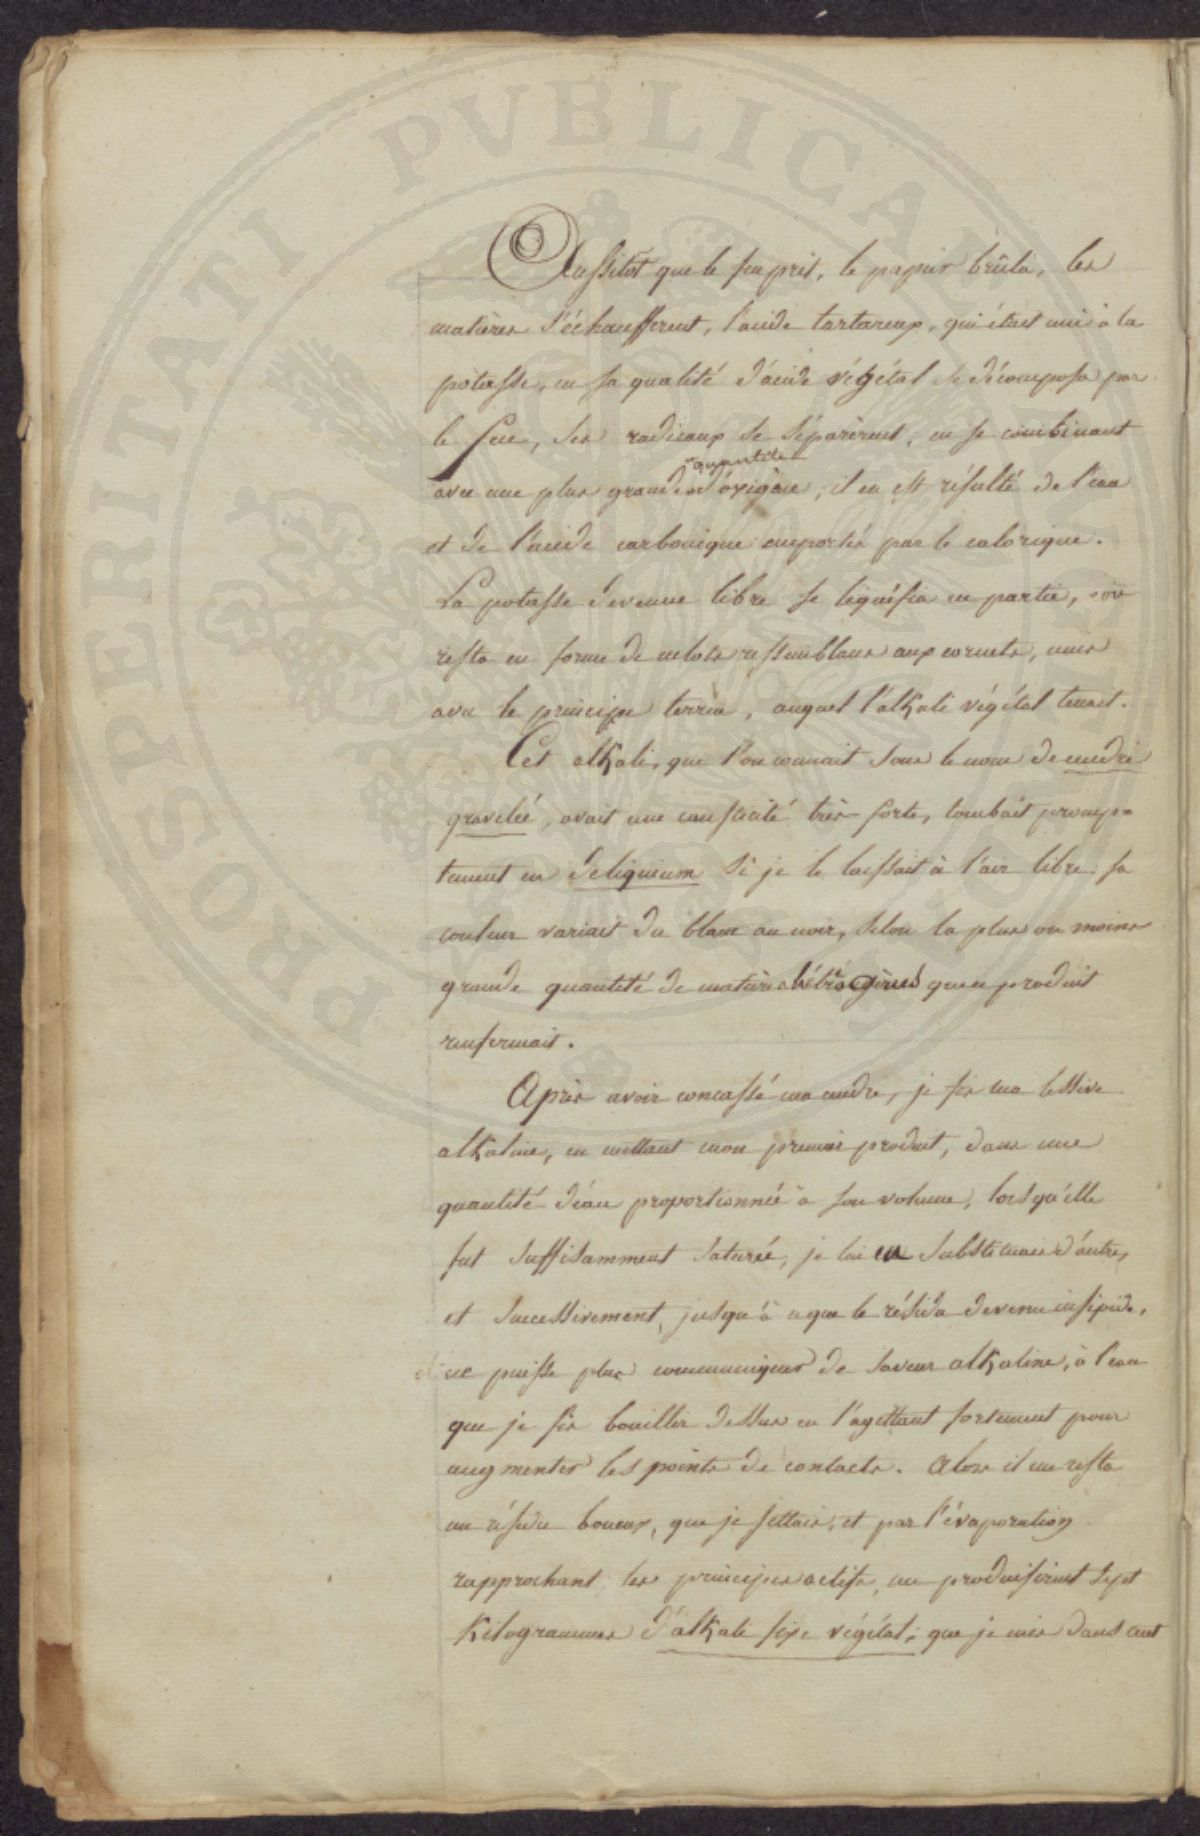 PROSPERITATI PVBLICAE
Aussitôt que le feu prit, le papier brûla, les
matières s'échaufferent, l'acide tartareux, qui était uni à la
potasse, en sa qualité d'acide végétal se décomposa par
le feu, ses radicaux se séparèrent, en se combinant
quantité
avec une plus grande d'oxigène, il en est résulté de l'eau
et de l'acide carbonique emportés par le calorique.
La potasse devenue libre se liquéfia en partie, ou
resta en forme de culots ressemblans aux cornets, unis
avec le principe terreux, auquel l'alkali végétal tenait.
Cet alkali, que l'on connait sous le nom de cendre
gravelée, avait une causticité très-forte, tombait promp-
tement en deliquium si je le laissait à l'air libre; sa
couleur variait du blanc au noir, selon la plus ou moins
grande quantité de matières hétérogènes que ce produit
renfermait.
Après avoir concassé ma cendre, je fis ma lessive
alkaline, en mettant mon premier produit, dans une
quantité d'eau proportionnée à son volume, lorsqu'elle
fut suffisamment saturée, je lui en substituais d'autre,
et successivement, jusqu'à ce que le résidu devenu insipide,
ne puisse plus communiquer de saveur alkaline, à l'eau
que je fis bouillir dessus en l'agittant fortement pour
augmenter les points de contacts. Alors il me resta
un résidu boueux, que je jettais, et par l'évaporation
rapprochant les principes actifs, me produisirent sept
Kilogrammes d'alkali fixe végétal, que je mis dans cent